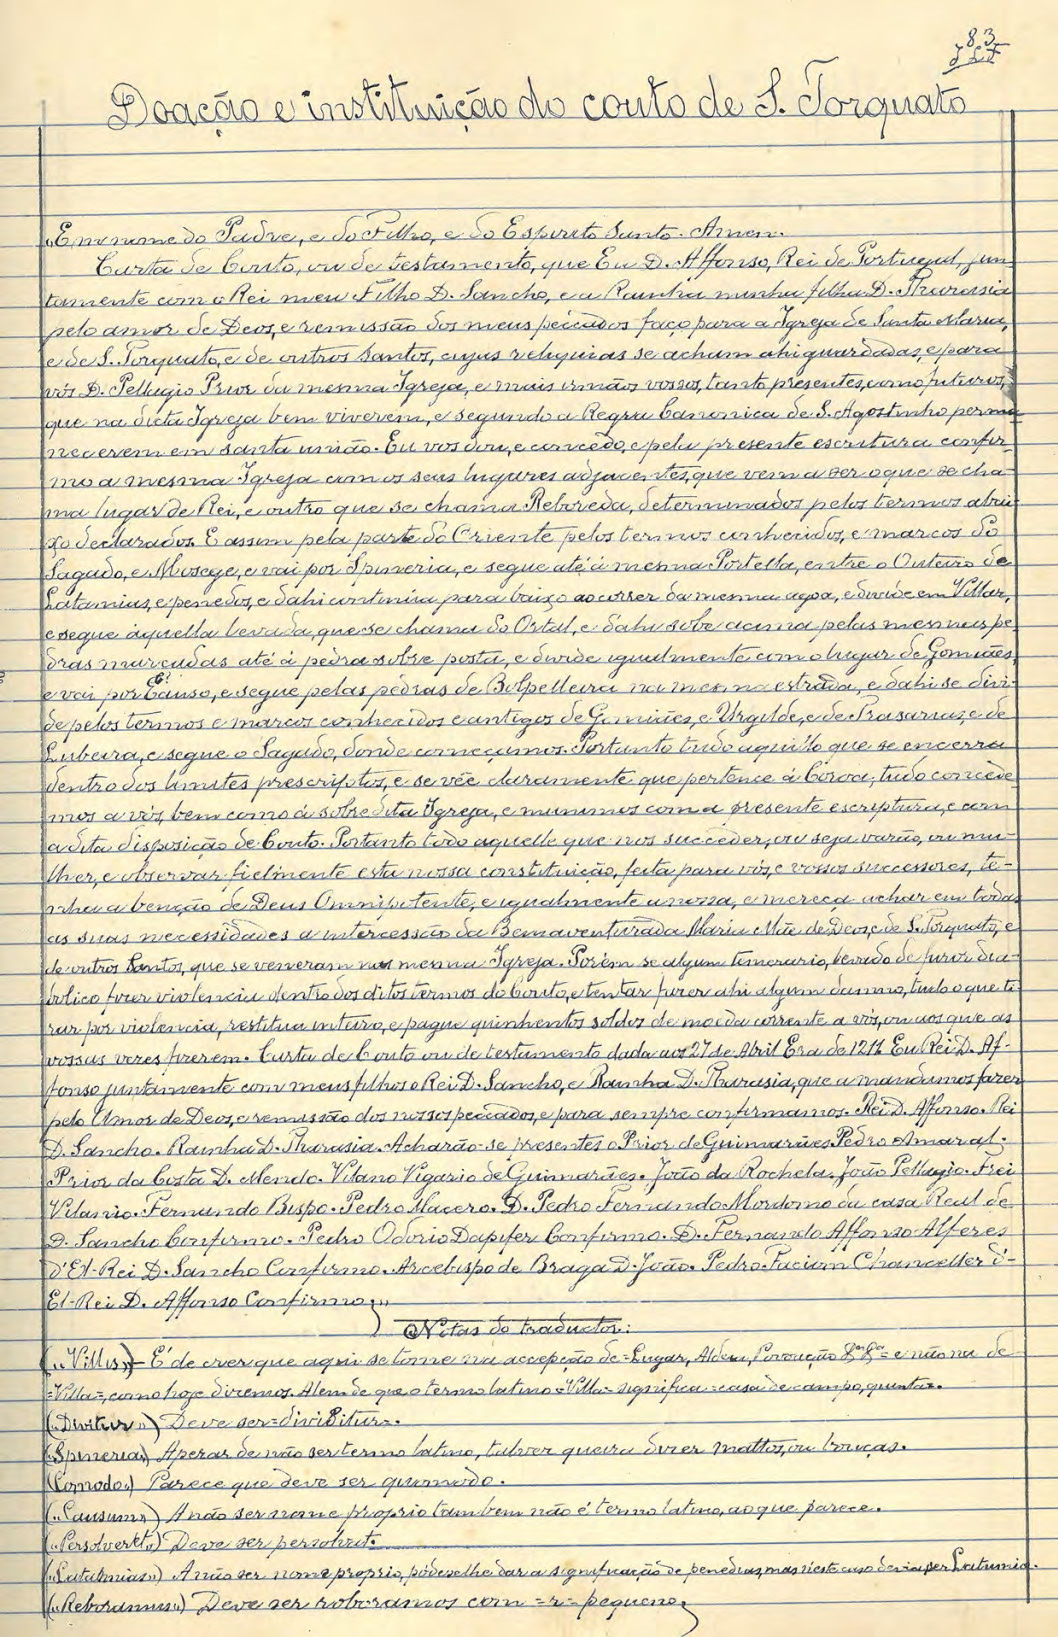 83
Doação e instituição do couto de S. Torquato
„Em nome do Padre, e do Filho, e do Espirito Santo. Amen.
Carta de Couto, ou de testamento, que Eu D. Affonso, Rei de Portugal, jun-
tamente com o Rei meu Filho D. Sancho, e a Rainha minha filha D. Tharasia
pelo amor de Deos, e remissão dos meus peccados faço para a Igreja de Santa Maria,
e de S. Torquato, e de outros Santos, cujas reliquias se acham ahi guardadas, e para
vós D. Pellagio Prior da mesma Igreja, e mais irmãos vossos, tanto presentes, como futuros,
que na dicta Igreja bem viverem, e segundo a Regra Canonica de S. Agostinho perma
necerem em santa união. Eu vos dou, e concedo, e pela presente escritura confir-
mo a mesma Igreja com os seus lugares adjacentes, que vem a ser o que se cha-
ma lugar de Rei, e outro que se chama Reboreda, determinados pelos termos abai-
xo declarados. E assim pela parte do Oriente pelos termos conhecidos, e marcos do
Sagado, e Mosege, e vai por Spineria, e segue até á mesma Portella, entre o Outeiro de
Latamias, e penedos, e dahi continúa para baixo ao correr da mesma agoa, e divide em Villar,
e segue áquella levada, que se chama do Ortal, e dahi sobe acima pelas mesmas pe
dras marcadas até á pedra sobre posta, e divide igualmente com o lugar de Gomiães,
e vai por Causo, e segue pelas pedras de Bolpelleira na mesma estrada, e dahi se divi-
de pelos termos e marcos conhecidos e antigos de Gomiães, e Urgilde, e de Prasarias, e de
Lubeira, e segue o Sagado, donde começamos. Portanto tudo aquillo que se encerra
dentro dos limites prescriptos, e se vêe claramente que pertence á Coroa, tudo concede
mos a vós, bem como á sobre dita Igreja, e munimos com a presente escriptura, e com
a dita disposição de Couto. Portanto todo aquelle que nos succeder, ou seja varão, ou mu-
lher, e observar fielmente esta nossa constituição, feita para vós, e vossos successores, te-
nha a benção de Deus Omnipotente, e igualmente a nossa, e mereça achar em todas
as suas necessidades a intercessão da Bemaventurada Maria Mãe de Deos, e de S. Torquato, e
de outros Santos, que se veneram na mesma Igreja. Porém se algum temerario, levado de furor dia-
bolico fizer violencia dentro dos ditos termos do Couto, e tentar fazer ahi algum damno, tudo o que ti-
rar por violencia, restitua inteiro, e pague quinhentos soldos de moeda corrente a vós, ou aos que as
vossas vezes fizerem. Carta de Couto ou de testamento dada aos 27 de Abril Era de 1211. Eu Rei D. Af-
fonso juntamente com meus filhos o Rei D. Sancho, e Rainha D. Tharasia, que a mandamos fazer
pelo Amor de Deos, e remissão dos nossos peccados, e para sempre confirmamos. Rei D. Affonso. Rei
D. Sancho. Rainha D. Tharasia. Acharão-se presentes o Prior de Guimarães Pedro Amaral.
Prior da Costa D. Mendo. Vitano Vigario de Guimarães. João da Rochela. João Pellagio. Frei
Vilamio. Fernando Bispo. Pedro Macero. D. Pedro Fernando Mordomo da casa Real de
D. Sancho Confirmo. Pedro Odorio Dapifer Confirmo. D. Fernando Affonso Alferes
d'El-Rei D. Sancho Confirmo. Arcebispo de Braga D. João. Pedro Faciam Chanceller d'-
El-Rei D. Affonso Confirmo„
Notas do traductor:
(„Villis„) É de crer que aqui se tome na accepção de = Lugar, Aldea, Povoação = e não na de
=Villa=, como hoje diremos. Alem de que o termo latino =Villa= significa = casa de campo, quinta=.
(„Divitur„) Deve ser = dividitur=.
(„Spineria„) Apezar de não ser termo latino, talvez queira dizer mattos, ou touças.
(„Comodo„) Parece que deve ser quomodo.
(„Causum„) A não ser nome proprio tambem não é termo latino, ao que parece.
(„Persolveret„) Deve ser persolvat.
(„Latamias„) A não ser nome proprio, póde-se-lhe dar a significação de penedias, mas n'este caso devia ser Latumia.
(„Reboramus„) Deve ser roboramos com =r= pequeno.